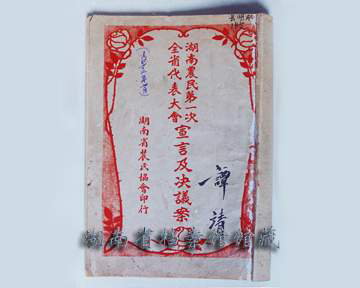 湖南農民第一次
全省代表大會宣言及决議案
湖南省農民協會印行
譚
湖南省档案馆馆藏